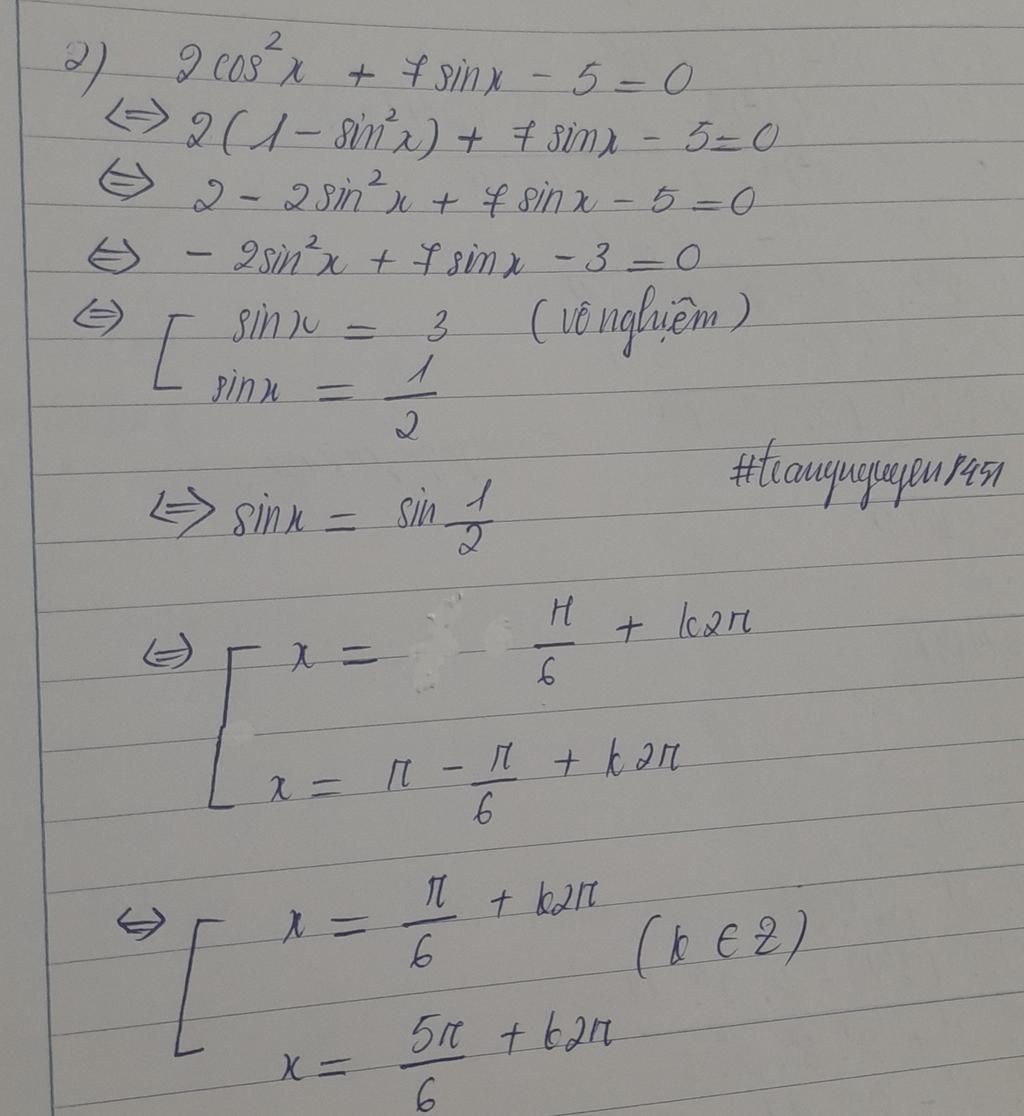 2) 2cos²x + 7sinx - 5 = 0
⇔ 2(1 - sin²x) + 7sinx - 5 = 0
⇔ 2 - 2sin²x + 7sinx - 5 = 0
⇔ - 2sin²x + 7sinx - 3 = 0
⇔ [ sinx = 3 (vô nghiệm)
sinx = 1/2
⇔ sinx = sin 1/2
⇔ [ x = π/6 + k2π
x = π - π/6 + k2π
⇔ [ x = π/6 + k2π
(k ∈ Z)
x = 5π/6 + k2π